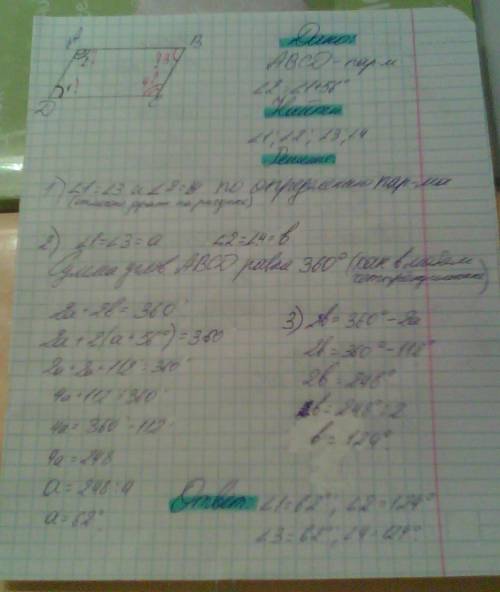 B
D
C
Дано:
ABCD - пар-м
∠2 = ∠1+56°
Найти:
∠1; ∠2; ∠3; ∠4
Решение
1) ∠1=∠3 и ∠2=∠4 по определению пар-ма
2) ∠1=∠3=a ∠2=∠4=b
Сумма углов ABCD равна 360° (как в любом четырёхугольнике)
2a+2b=360°
2a+2(a+56°)=360
2a+2a+112=360°
4a+112=360
4a=360-112
4a=248
a=248:4
a=62°
3) 2b=360°-2a
2b=360°-112°
2b=248°
b=248:2
b=124°
Ответ: ∠1=62°; ∠2=124°
∠3=62°; ∠4=124°